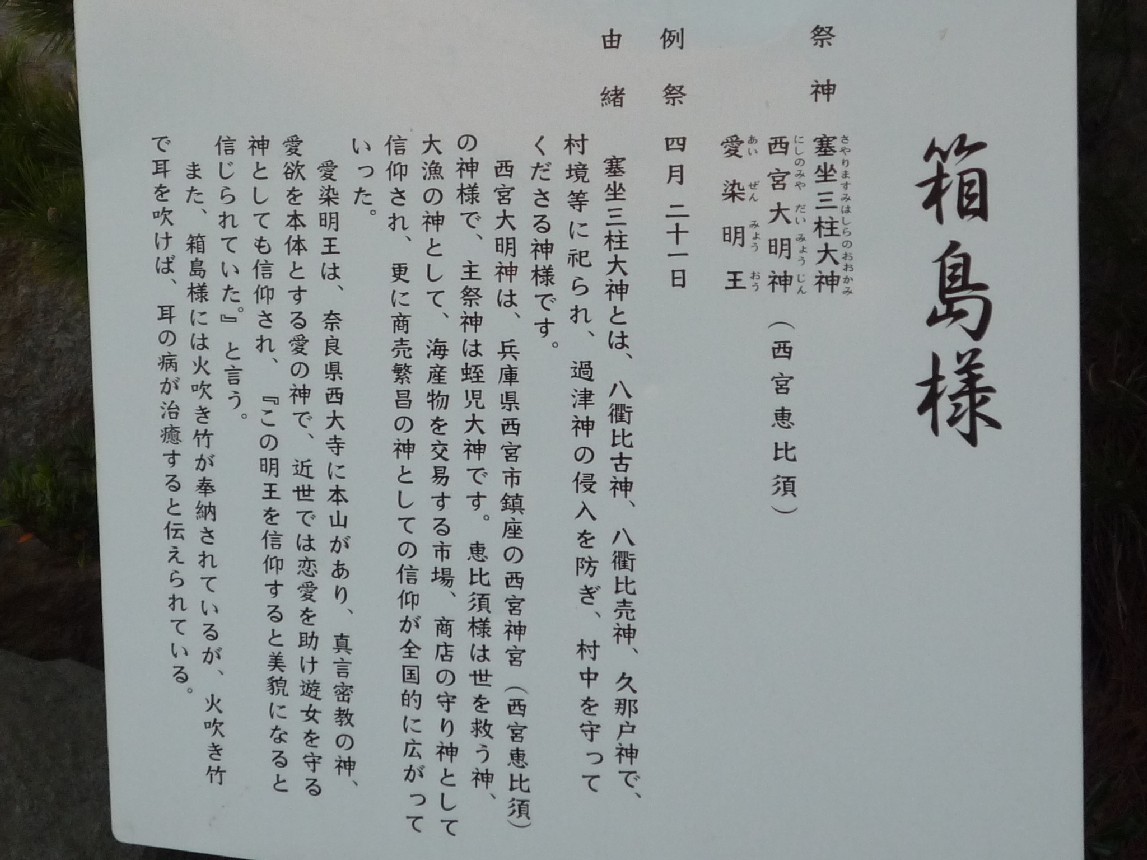 箱島様
祭神
塞坐三柱大神
さやりますみはしらのおおかみ
西宮大明神(西宮恵比須)
にしのみやだいみょうじん
愛染明王
あいぜんみょうおう
例祭 四月二十一日
由緒
塞坐三柱大神とは、八衢比古神、八衢比売神、久那戸神で、
村境等に祀られ、過津神の侵入を防ぎ、村中を守って
くださる神様です。
西宮大明神は、兵庫県西宮市鎮座の西宮神宮(西宮恵比須)
の神様で、主祭神は蛭児大神です。恵比須様は世を救う神、
大漁の神として、海産物を交易する市場、商店の守り神として
信仰され、更に商売繁昌の神としての信仰が全国的に広がって
いった。
愛染明王は、奈良県西大寺に本山があり、真言密教の神、
愛欲を本体とする愛の神で、近世では恋愛を助け遊女を守る
神としても信仰され、『この明王を信仰すると美貌になると
信じられていた。』と言う。
また、箱島様には火吹き竹が奉納されているが、火吹き竹
で耳を吹けば、耳の病が治癒すると伝えられている。